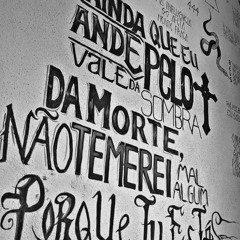 AINDA QUE EU
ANDE PELO
VALE DA
SOMBRA
DA MORTE,
NÃO TEMEREI
MAL
ALGUM
PORQUE TU ESTÁS